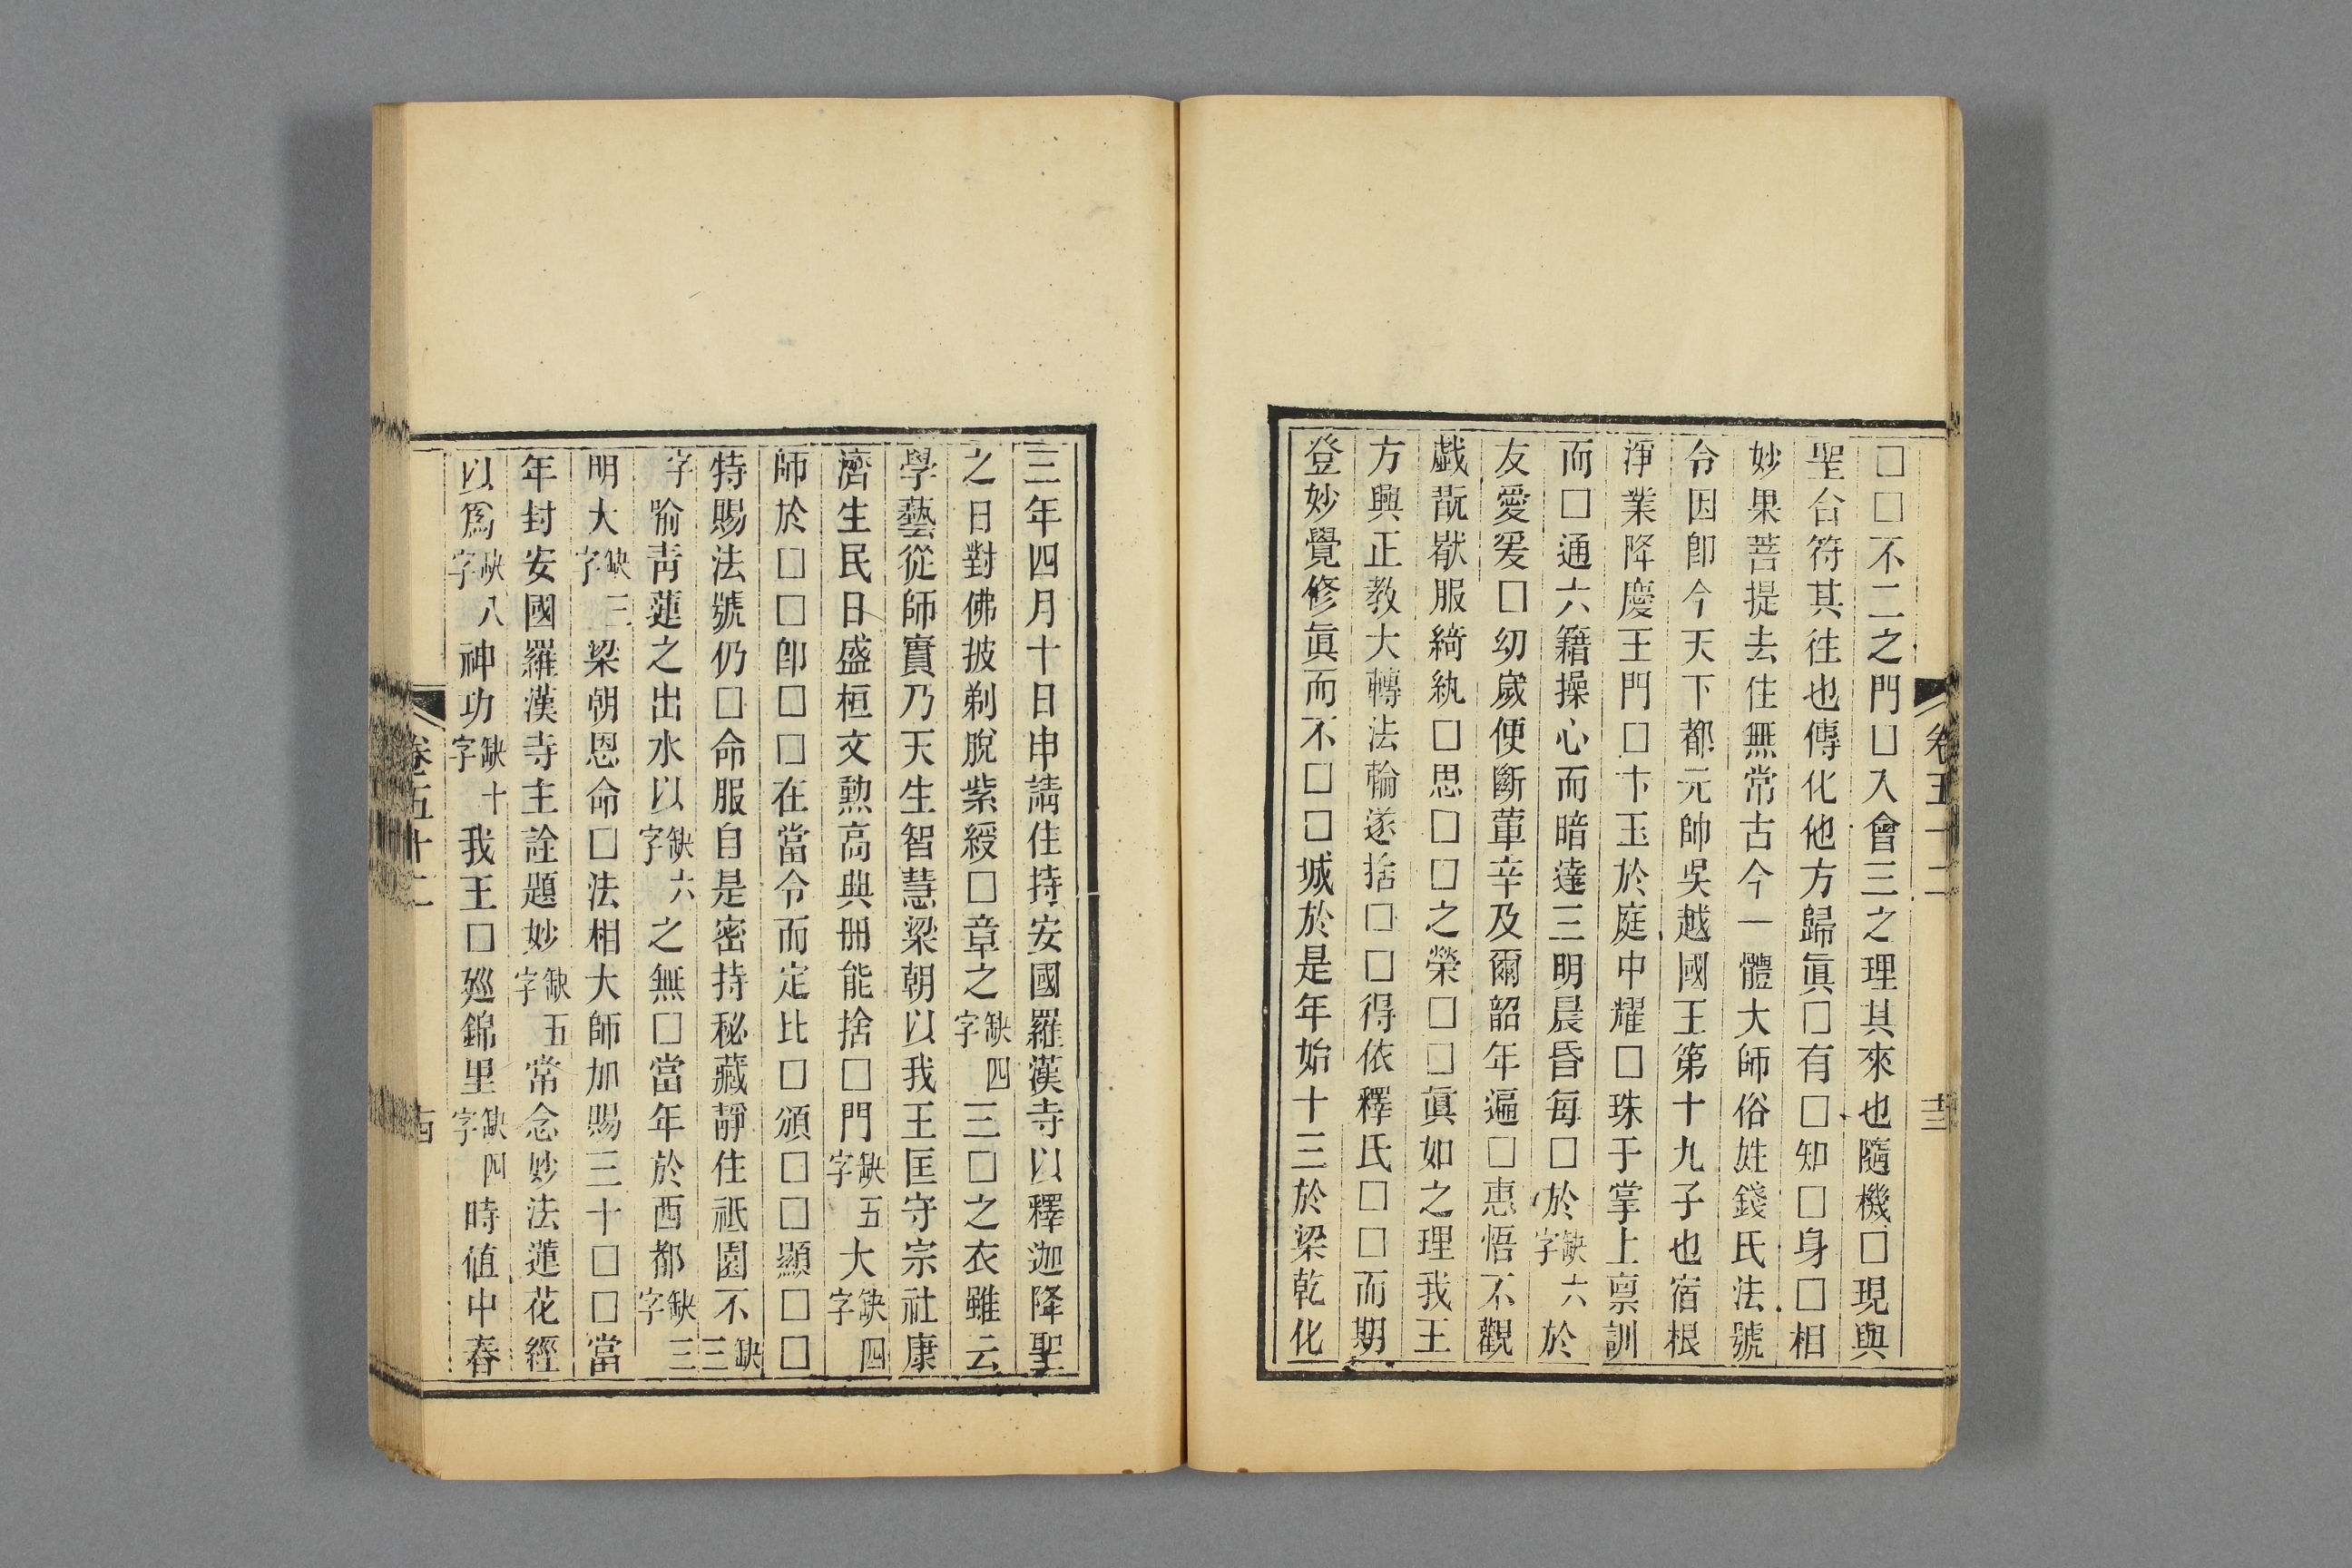 □□不二之門□入會三之理其來也隨機□現與
聖合符其往也傳化他方歸眞□有□知□身□相
妙果菩提去住無常古今一體大師俗姓錢氏法號
令因卽今天下都元帥吳越國王第十九子也宿根
淨業降慶王門□卞玉於庭中耀□珠于掌上禀訓
而□通六籍操心而暗達三明晨昏每□於缺六字於
友愛爰□幼歲便斷葷辛及爾韶年遍□惠悟不觀
戯翫猒服綺紈□思□□之榮□□眞如之理我王
方興正教大轉法輪遂捨□□得依釋氏□□而期
登妙覺修眞而不□□城於是年始十三於梁乾化
卷五十二
十三
三年四月十日申請住持安國羅漢寺以釋迦降聖
之日對佛披剃脫紫綬□章之缺四字三□之衣雖云
學藝從師實乃天生智慧梁朝以我王匡守宗社康
濟生民日盛桓文勲高典冊能捨□門缺五字大缺四字
師於□□卽□□在當令而定比□頒□□顯□□
特賜法號仍□命服自是密持秘藏靜住祇園不缺三
字喻靑蓮之出水以缺六字之無□當年於西都缺三字
明大缺三字梁朝恩命□法相大師加賜三十□□當
年封安國羅漢寺主詮題妙缺五字常念妙法蓮花經
以爲缺八字神功缺十字我王□廵錦里缺四字時值中春
卷五十二
十四